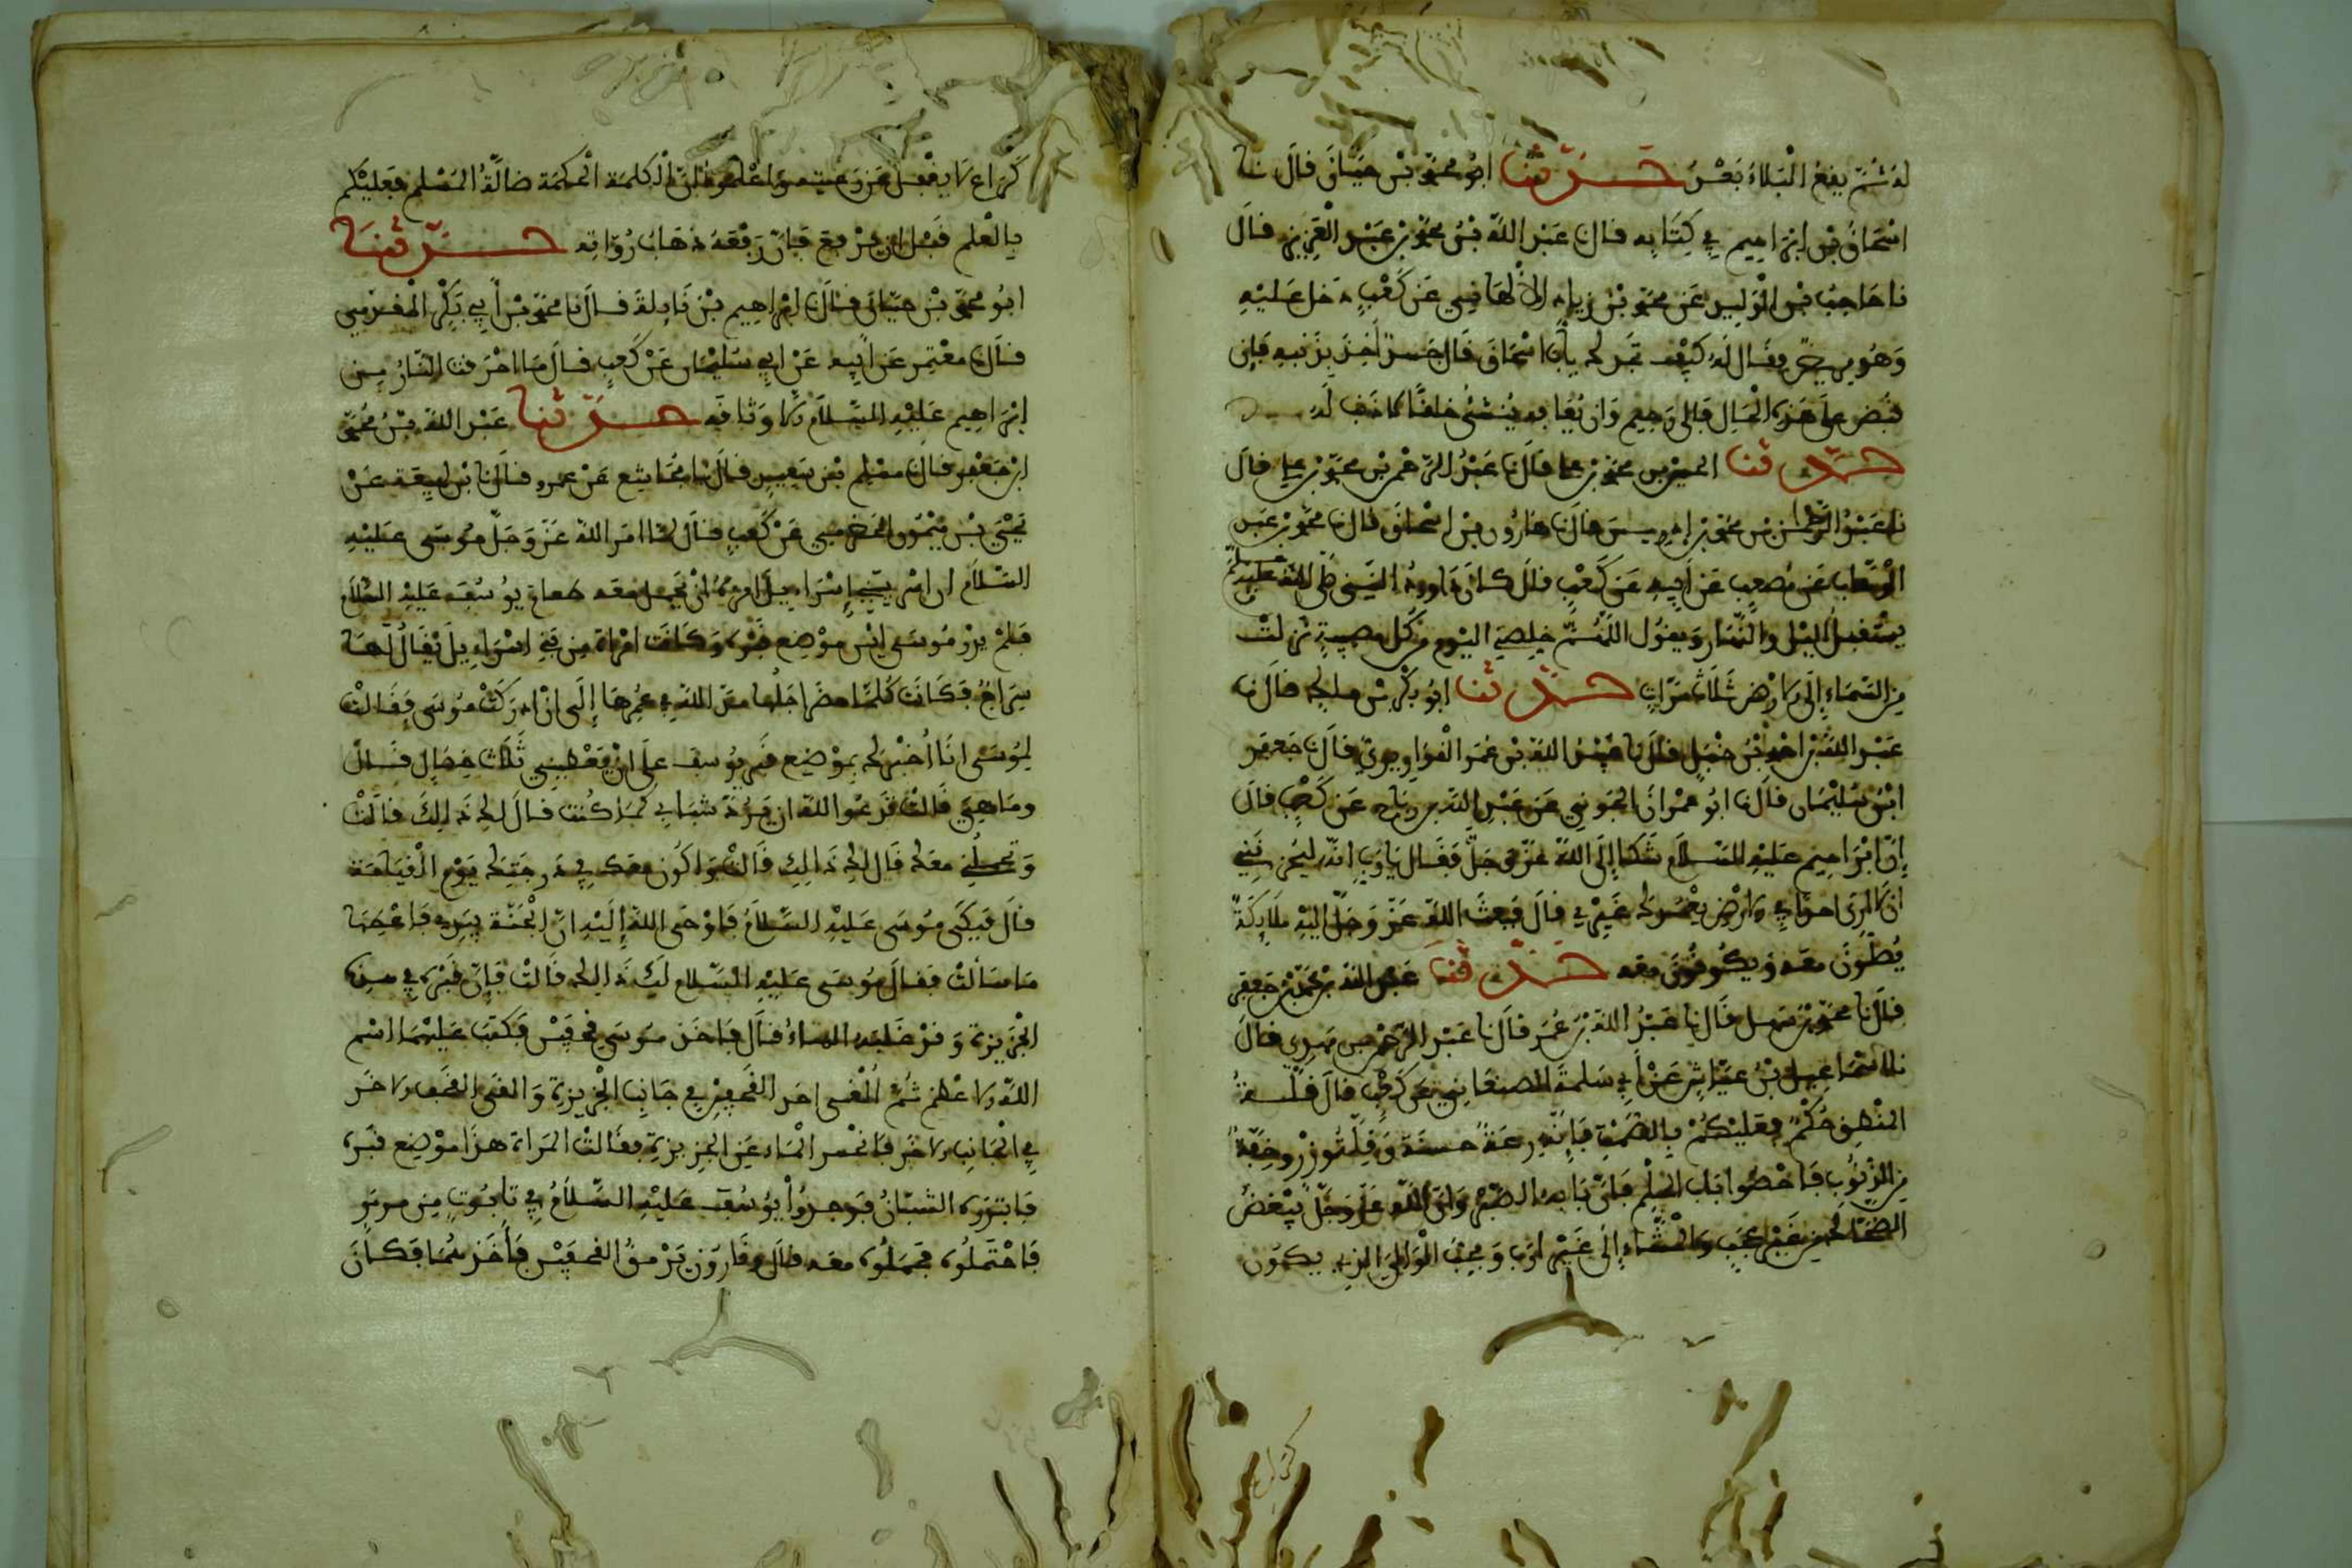 له ثم يقع البلاء بعد حدثنا ابو محمد بن حيان قال نا
اسحاق بن ابراهيم في كتابه قال عبد الله بن محمد بن عبد العزيز قال
نا حاجب بن الوليد عن محمد بن زياد الالهاني عن كعب دخل عليه
وهو مريض فقال له كيف تجدك يأبا اسحاق قال جسد اخذ بذنبه فإن
قبض على هذه الحال فالى رحيم وان يعافه ينشئ خلقا لا ذنب له
حدثنا الحسين بن محمد بن علي قال نا عبد الرحمن بن محمد بن قال
نا عبد الرحمن بن محمد بن إدريس قال نا هارون بن اسحاق قال نا محمد بن عبد
الوهاب عن مصعب عن أبيه عن كعب قال كان داوود النبي صلى الله عليه وسلم
يستقبل الليل والنهار ويقول اللهم خلصني اليوم من كل مصيبة نزلت
من السماء إلى الارض ثلاث مرات حدثنا ابو بكر بن مالك قال نا
عبد الله بن احمد بن حنبل قال نا عبيد الله بن عمر القواريري قال نا جعفر
ابن سليمان قال نا ابو عمران الجوني عن عبد الله بن رباح عن كعب قال
إن ابراهيم عليه السلام شكا إلى الله عز وجل فقال يا رب انه ليحزنني
ان لا ارى احدا في الارض يعبدك غيري قال فبعث الله عز وجل اليه ملائكة
يصلون معه ويكونون معه حدثنا عبد الله بن محمد بن جعفر
قال نا محمد بن سهل قال نا عبد الله بن عمر قال نا عبد الرحمن بن مهدي قال
نا اسماعيل بن عياش عن أبي سلمة الصنعاني عن كعب قال قلة
المنطق حكم فعليكم بالصمت فإنه رعة حسنة وقلة وزر وخفة
من الذنوب فاحصوا باب الحلم فإن بابه الصبر وإن الله عز وجل يبغض
الضحاك من غير عجب والمشاء إلى غير ارب ويحب الوالي الذي يكون
كراع لا يغفل عن رعيته واعلموا ان الكلمة الحكمة ضالة المسلم فعليكم
بالعلم قبل ان يرفع فإن رفعه ذهاب رواته حدثنا
ابو محمد بن حيان قال نا إبراهيم بن نايلة قال نا محمد بن أبي بكر المقدمي
قال نا معتمر عن ابيه عن ابي سليمان عن كعب قال ما احرقت النار من
إبراهيم عليه السلام الا وثاقه حدثنا عبد الله بن محمد
ابن جعفر قال نا مسلم بن سعيد قال نا مجاشع عن عمرو قال نا بن لهيعة عن
يحيى بن ميمون الحضرمي عن كعب قال لما امر الله عز وجل موسى عليه
السلام ان اسر ببني إسراءيل امره ان يحمل معه عظام يوسف عليه السلام
فلم يدر موسى اين موضع قبره وكانت امراة من بني اسراءيل يقال لها
سراج فكانت كلما حضر اجلها مد الله في عمرها إلى ان ادركت موسى فقالت
لموسى انا أخبرك بموضع قبر يوسف على ان تعطيني ثلاث خصال قال
وما هي قالت تدعو الله ان يرد شبابي كما كنت قال لك ذلك قالت
وتحملني معك قال لك ذالك قالت واكون معك في درجتك يوم القيامة
قال فبكى موسى عليه السلام فاوحى الله إليه ان الجنة بيدي فاعطها
ما سألت فقال موسى عليه السلام لك ذالك قالت فإن قبره في هذه
الجزيرة وقد غلبه الماء قال فاخذ موسى قحفين فكتب عليهما اسم
الله الاعظم ثم القى احد القحفين في جانب الجزيرة والقى القحف الاخر
في الجانب الاخر فانحسر الماء عن الجزيرة فقالت المراة هذا موضع قبره
فابتدره الشبان فوجدوا يوسف عليه السلام في تابوت من مرمر
فاحتملوه فحملوه معه قال وقارون يرمق القحفين فأخذهما فكان